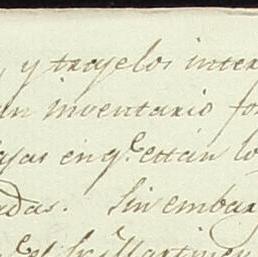 , y traxelos inter
un inventario fo
ajas en q.e están lo
adas. Sin embar
el Martinen